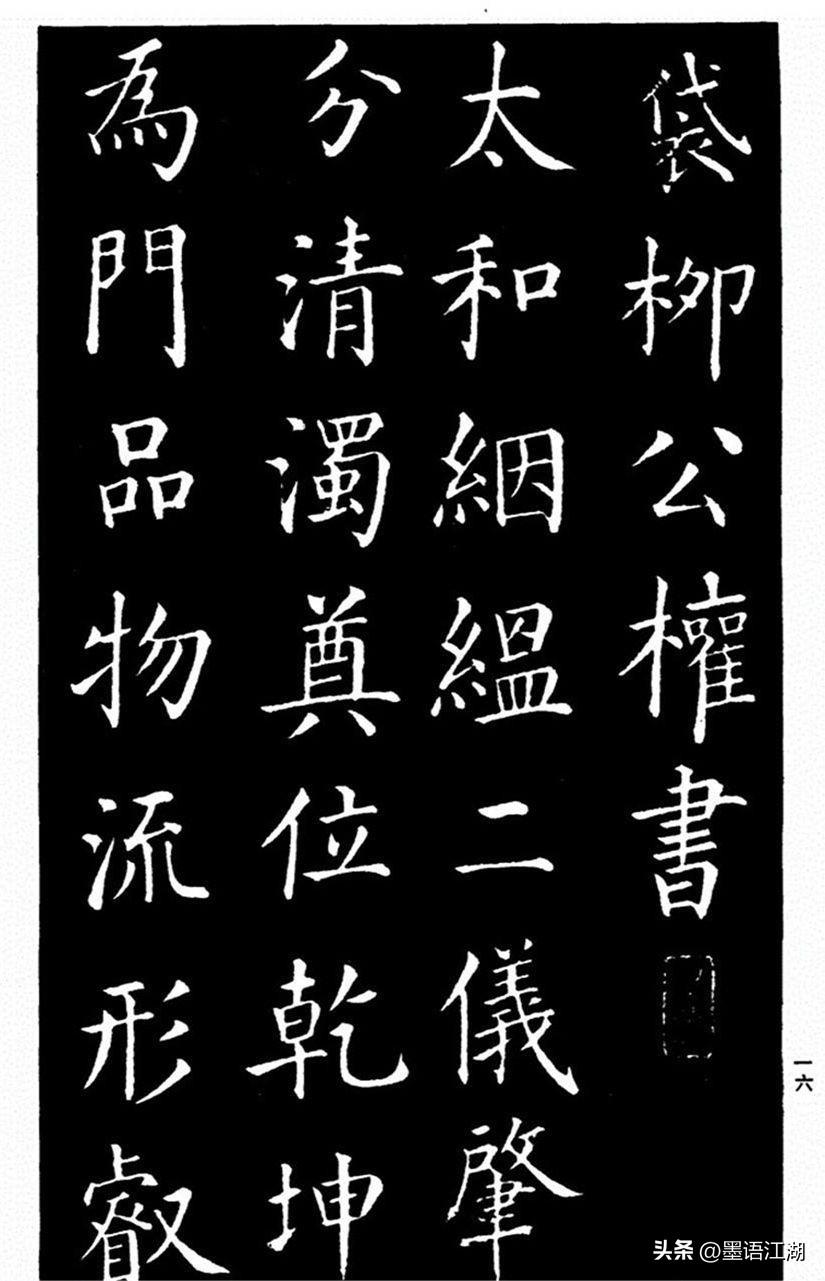 袋柳公權書
太和絪縕二儀肇
分清濁奠位乾坤
為門品物流形叡
一六
头条 @墨语江湖